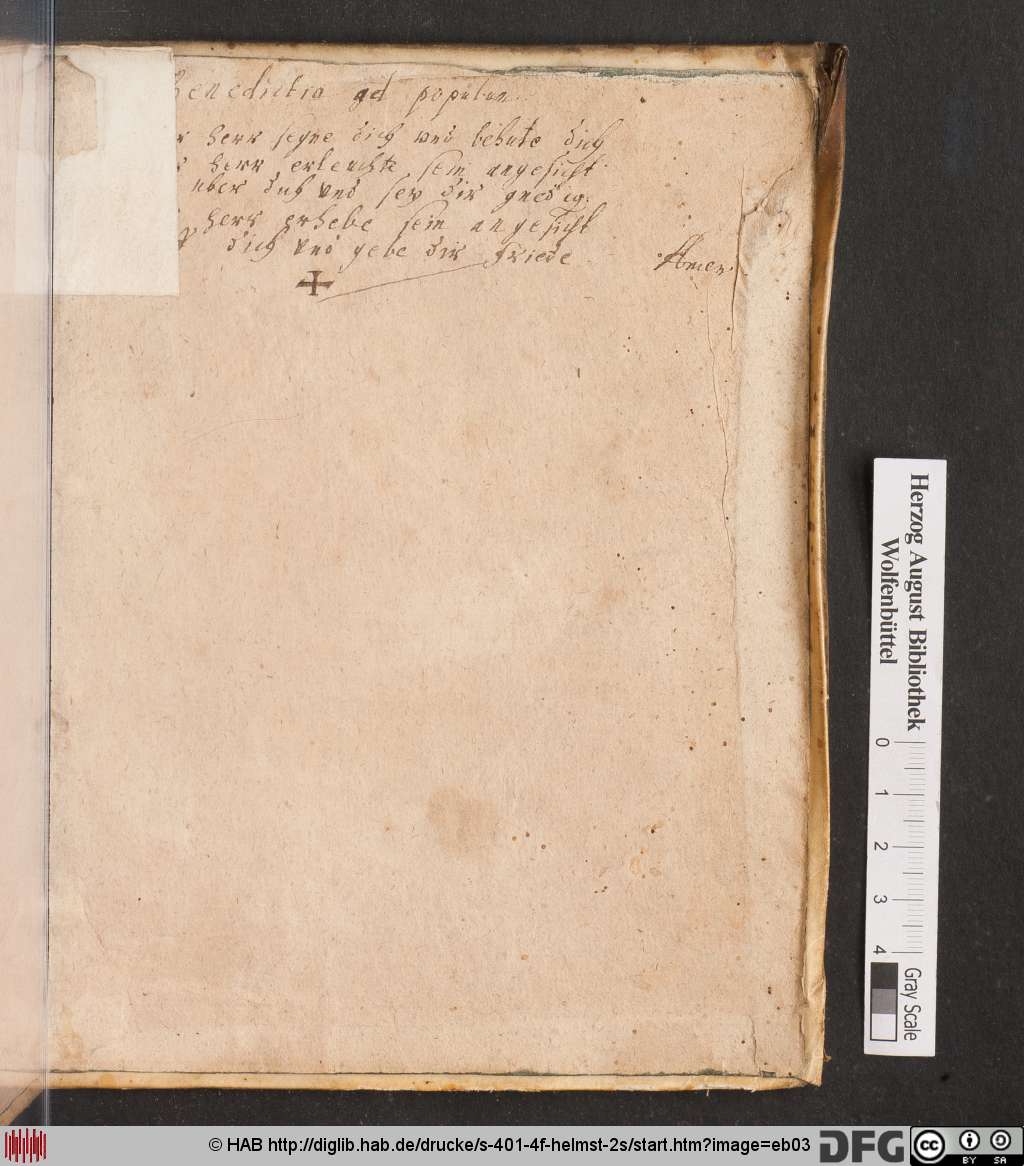 benedictio ad populum
herr segne dich vnd behute dich
herr erleuchte sein angesicht
uber dich vnd sey dir gnedig.
herr erhebe sein angesicht
dich vnd gebe dir friede Amen.
Herzog August Bibliothek
Wolfenbüttel
0 1 2 3 4
Gray Scale
© HAB http://diglib.hab.de/drucke/s-401-4f-helmst-2s/start.htm?image=eb03
DFG
cc BY SA